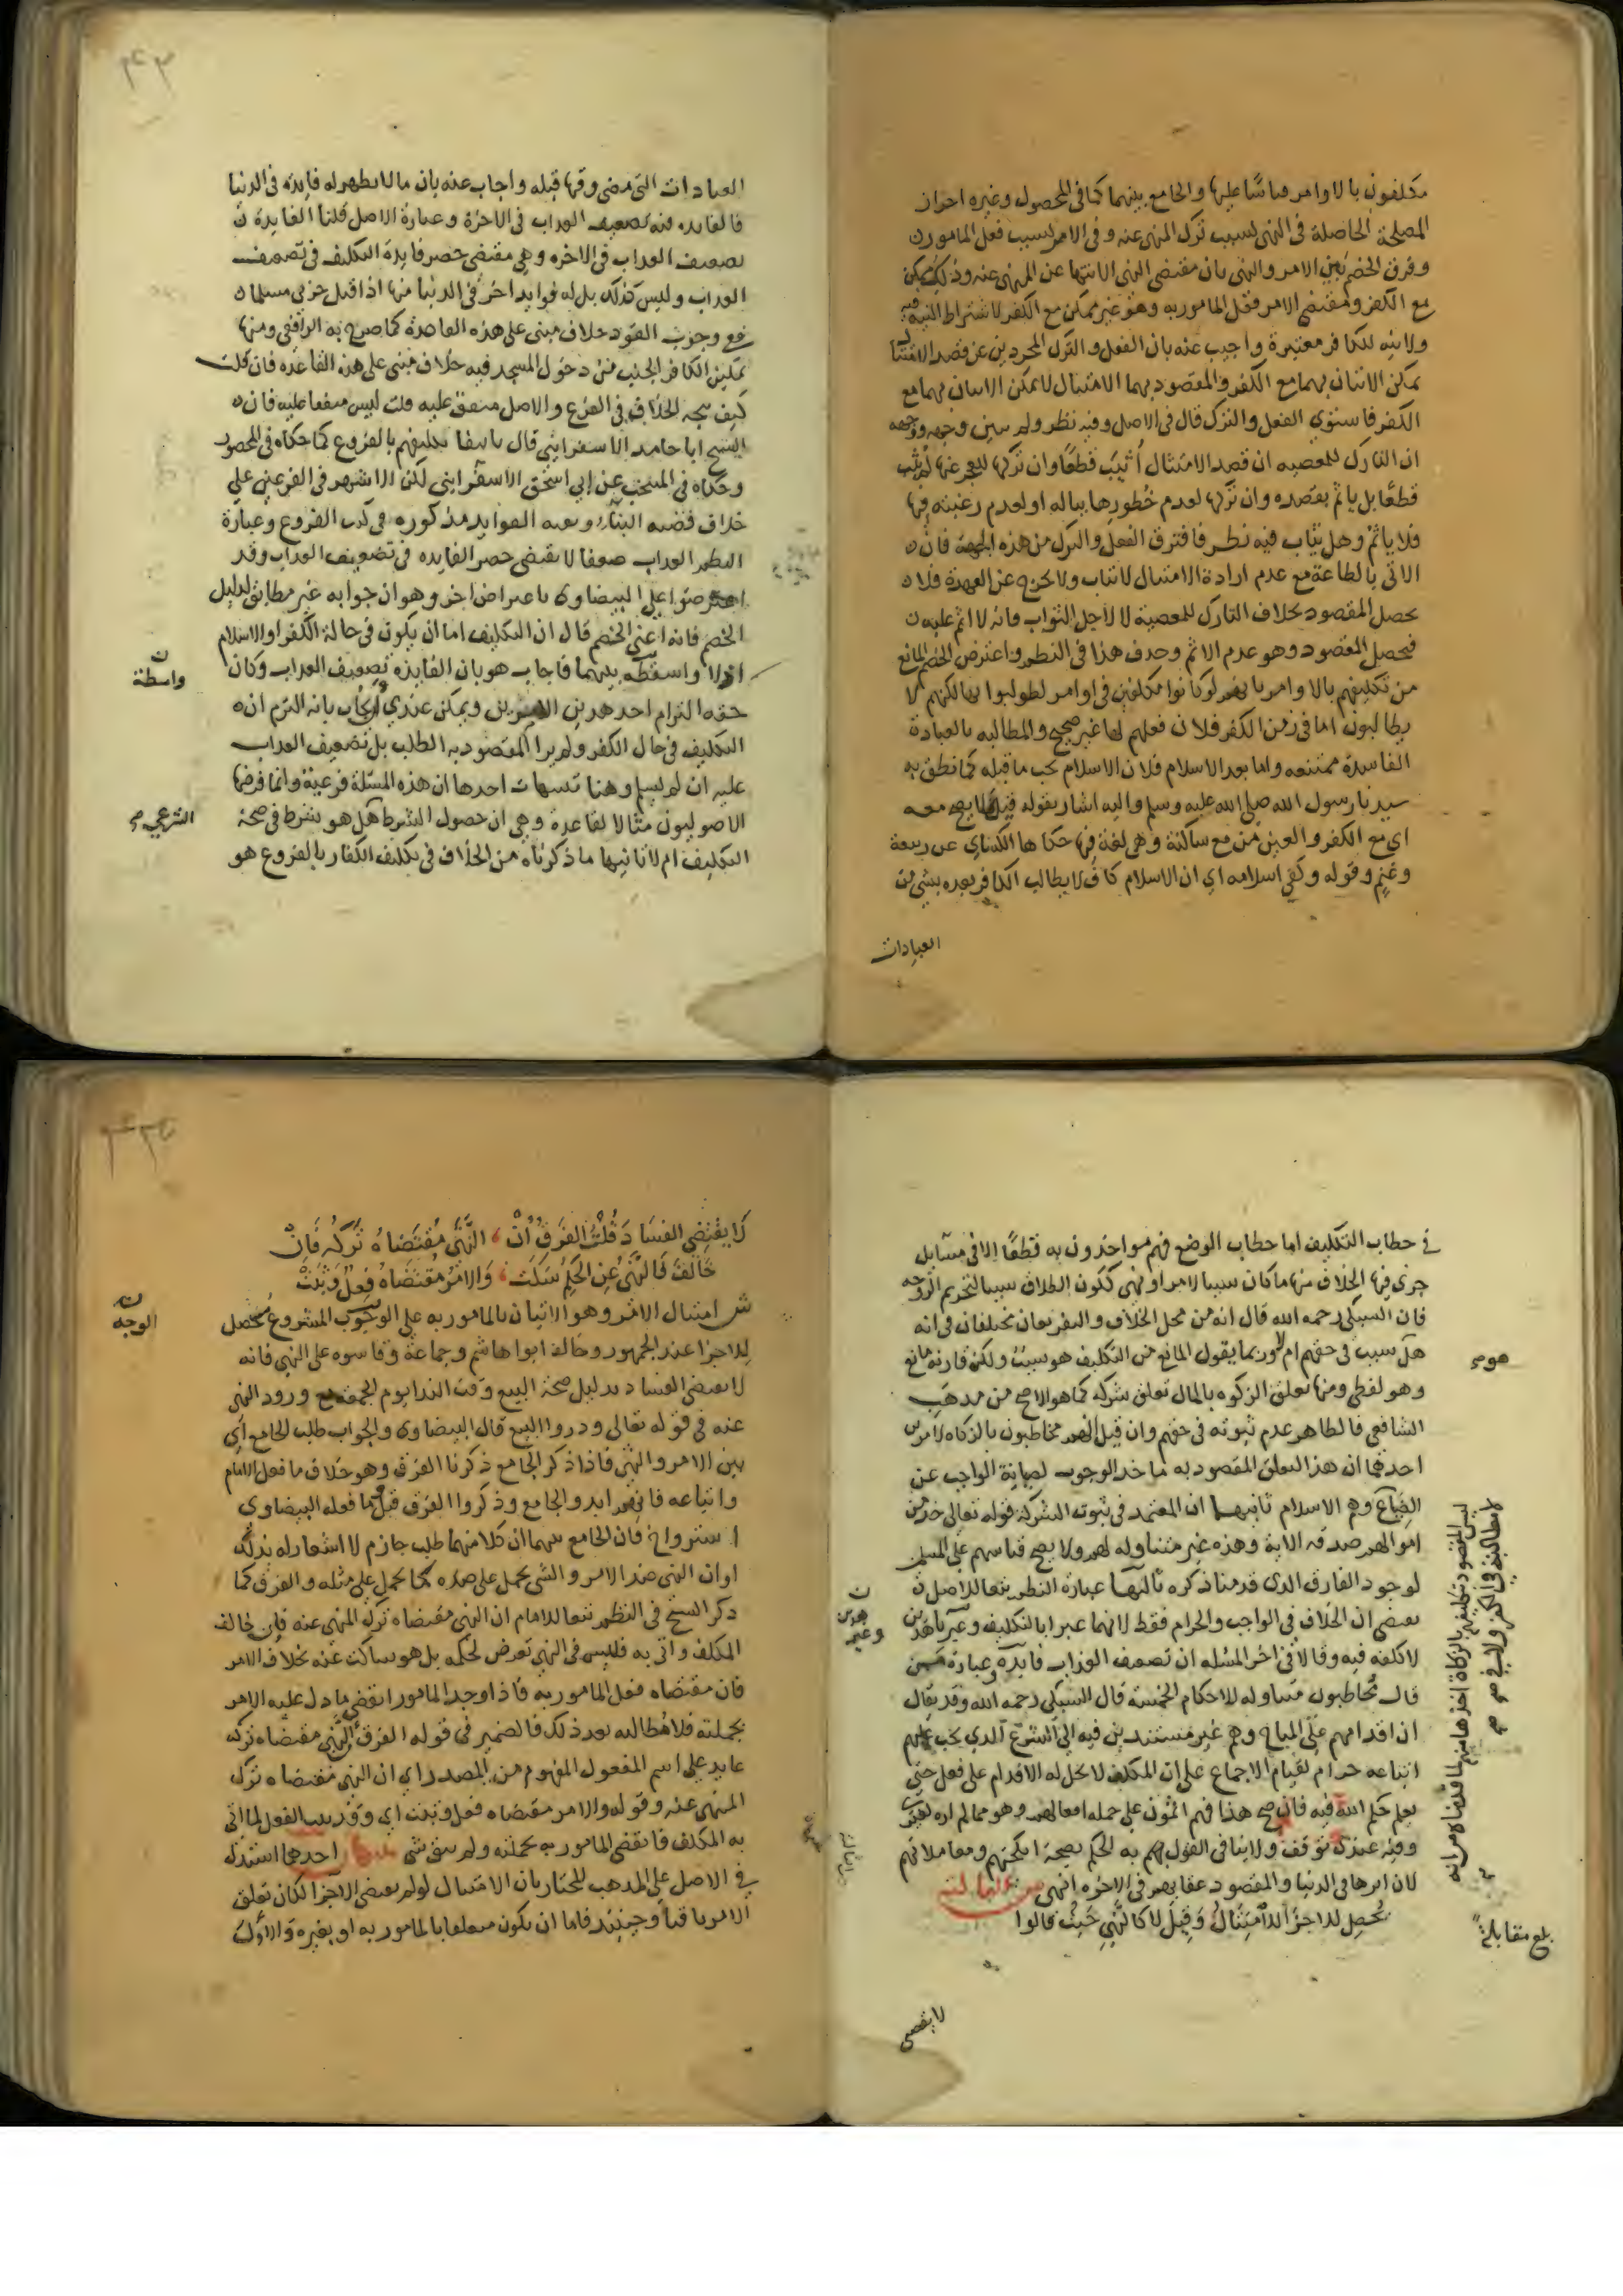 مكلفون بالاوامر قياسًا عليها والجامع بينهما كما في المحصول وغيره احراز
المصلحة الحاصلة في النهي بسبب ترك المنهي عنه وفي الامر بسبب فعل المامور
وفرق الخصم بين الامر والنهي بان مقتضى النهي الانتها عن المنهي عنه وذلك ممكن
مع الكفر ومقتضى الامر فعل المامور به وهو غير ممكن مع الكفر لاشتراط النية فيه
ولا نيه لكافر معتبرة واجيب عنه بان الفعل والترك المجردين عن قصد الامتثال
يمكن الاتيان بهما مع الكفر والمقصود بهما الامتثال لا يمكن الاتيان بهما مع
الكفر فاستوي الفعل والترك قال في الاصل وفيه نظر ولم يبين وجهه ووجهه
ان التارك للمعصيه ان قصد الامتثال اُثيبَ قطعًا وان تركها للعجز عنها لم يثب
قطعًا بل ياثم بقصده وان تركها لعدم خُطورها بباله او لعدم رغبته فيها
فلا ياثم وهل يثاب فيه نظر فافترق الفعل والترك من هذه الجهة فان
الاتي بالطاعة مع عدم ارادة الامتثال لا يثاب ولا يخرج عن العهدة فلا
يحصل المقصود بخلاف التارك للمعصية لا لاجل الثواب فانه لا اثم عليه
فيحصل المقصود وهو عدم الاثم وحذف هذا في النظم واعترض الخصم المانع
من تكليفهم بالاوامر بانهم لو كانوا مكلفين في اوامر لطولبوا بها لكنهم لا
يطالبون اما في زمن الكفر فلان فعلهم لها غير صحيح والمطالبه بالعبادة
الفاسدة ممتنعه واما بعد الاسلام فلان الاسلام يجب ما قبله كما نطق به
سيدنا رسول الله صلى الله عليه وسلم واليه اشار بقوله قيل لا يصح معه
اي مع الكفر والعين من مع ساكنة وهي لغة فيها حكاها الكساي عن ربيعة
وغنم وقوله وكفى اسلامه اي ان الاسلام كاف لا يطالب الكافر بعده بشي من
العبادات
العبادات التي مضى وقتها قبله واجاب عنه بان ما لا يظهر له فايدة في الدنيا
فالفايده فيه تضعيف العذاب في الاخرة وعبارة الاصل قلنا الفايدة
تضعيف العذاب في الاخره وهي مقتضى حصر فايدة التكليف في تضعيف
العذاب وليس كذلك بل له فوايد اخر في الدنيا منها اذا قتل حربي مسلما
ففي وجوب القود خلاف مبنى على هذه القاعدة كما صرح به الرافعي ومنها
تمكين الكافر الجنب من دخول المسجد فيه خلاف مبني على هذه القاعده فان قلت
كيف يتجه الخلاف في الفرع والاصل متفق عليه قلت ليس متفقا عليه فان
الشيخ ابا حامد الاسفرايني قال بانتفا تكليفهم بالفروع كما حكاه في المحصول
وحكاه في المنتخب عن ابي اسحق الاسفرايني لكن الاشهر في الفرعين على
خلاف قضيه البناء وبقيه الفوايد مذكوره في كتب الفروع وعبارة
النظم العذاب ضعفا لا تقتضي حصر الفايده في تضعيف العذاب وقد
اعترضوا على البيضاوى باعتراض اخر وهو ان جوابه غير مطابق لدليل
الخصم فانه اعني الخصم قال ان التكليف اما ان يكون في حالة الكفر او الاسلام
اذ لا واسطة بينهما فاجاب هو بان الفايده تضعيف العذاب وكان
حقه التزام احد هذين الامرين ويمكن عندي الجواب بانه التزم انه
التكليف في حال الكفر ولم ير المقصود به الطلب بل تضعيف العذاب
عليه ان لم يسلم وهنا تنبيهات احدها ان هذه المسئلة فرعية وانما فرضها
الاصوليون مثالا لقاعدة وهي ان حصول الشرط هل هو شرط في صحة
التكليف ام لا ثانيها ما ذكرناه من الخلاف في تكليف الكفار بالفروع هو
ن
واسطة
الشرعي صح
في خطاب التكليف اما خطاب الوضع فهم مواخذون به قطعًا الا في مسايل
جرى فيها الخلاف منها ما كان سببا لامر او نهي ككون الطلاق سببا لتحريم الزوجه
فان السبكي رحمه الله قال انه من محل الخلاف والفريقان مختلفان في انه
هل سبب في حقهم ام لا وربما يقول المانع من التكليف هو سبب ولكن قارنه مانع
وهو لفظي ومنها تعلق الزكوه بالمال تعلق شركه كما هو الاصح من مذهب
الشافعي فالظاهر عدم ثبوته في حقهم وان قيل انهم مخاطبون بالزكاه لامرين
احدهما ان هذا التعلق المقصود به تاخد الوجوب لصيانة الواجب عن
الضياع وهم الاسلام ثانيهما ان المعتمد في ثبوت الشركة قوله تعالى خذ من
اموالهم صدقه الاية وهذه غير متناوله لهم ولا يصح قياسهم على المسلم
لوجود الفارق الذي قدمنا ذكره ثالثها عبارة النظم تبعا للاصل
تقتضي ان الخلاف في الواجب والحرام فقط لانهما عبرا بالتكليف وغير هذين
لا كلفه فيه وقالا في اخر المسئله ان تضعيف العذاب فايده وعبارة من
قال مخاطبون متناوله للاحكام الخمسة قال السبكي رحمه الله وقد يقال
ان اقدامهم على المباح وهم غير مستندين فيه الى الشرع الذي يجب عليهم
اتباعه حرام لقيام الاجماع على ان المكلف لا يحل له الاقدام على فعل حتى
يعلم حكم الله فيه فان صح هذا فهم اثمون على جمله افعالهم وهو مما لم اره لغيري
وفيه عندي توقف ولا ينافي القول بهم به الحكم بصحة انكحتهم ومعاملاتهم
لان اثرها في الدنيا والمقصود عقابهم في الاخره انتهى
يُحصِلُ للاجزا الامتثالُ وَقِيلَ لا كالنَّهيِ حَيثُ قالوا
هو صح
ن
هذين
وغير
ليس المقصود تكليفهم بالزكاة اخذها منهم لما قدمناه من انه
لا مطالبة في الكفر ولا
بلغ مقابلة
لا يقتضي
لَا يَقْتَضِي الفسَادَ قُلْتُ الفَرقُ أنْ النَّهْيَ مُقْتَضَاهُ تَرْكُه فَإنْ
خَالَفَ فَالنَّهْيُ عَنِ الحُكْمِ سَكَتْ وَالامْرُ مُقْتَضَاهُ فِعلٌ وَثَبَتْ
ش امتثال الامر وهو الاتيان بالمامور به على الوجه المشروع محصل
للاجزا عند الجمهور وخالف ابوا هاشم وجماعة وقاسوه على النهي فانه
لا يقتضي الفساد بدليل صحة البيع وقت الندا يوم الجمعة مع ورود النهي
عنه في قوله تعالى وذروا البيع قال البيضاوى والجواب طلب الجامع اي
بين الامر والنهي فاذا ذكر الجامع ذكرنا الفرق وهو خلاف ما فعل الامام
واتباعه فانهم ابدوا الجامع وذكروا الفرق قبل وما فعله البيضاوى
فان الجامع بينهما ان كلا منهما طلب جازم لا اشعار له بذلك
او ان النهي ضد الامر والشي يحمل على ضده كما يحمل على مثله والفرق كما
ذكر الشيخ في النظم تبعا للامام ان النهي مقتضاه ترك المنهي عنه فان خالف
المكلف واتى به فليس في النهي تعرض لحكمه بل هو ساكت عنه بخلاف الامر
فان مقتضاه فعل المامور به فاذا وجد المامور انقضى ما دل عليه الامر
بجملته فلا مطالبه بعد ذلك فالضمير في قوله الفرق ان النهي مقتضاه تركه
عايد على اسم المفعول المفهوم من المصدر اي ان النهي مقتضاه ترك
المنهي عنه وقوله والامر مقتضاه فعل وثبت اي وقد ثبت الفعل لما اتى
به المكلف فانقضى المامور به بجملته ولم يبق شي احدها استدل
في الاصل على المذهب المختار بان الامتثال لو لم يقتضي الاجزا لكان تعلق
الامر باقيا وحينئذ فاما ان يكون متعلقا بالمامور به او بغيره والاول
ن
الوجه